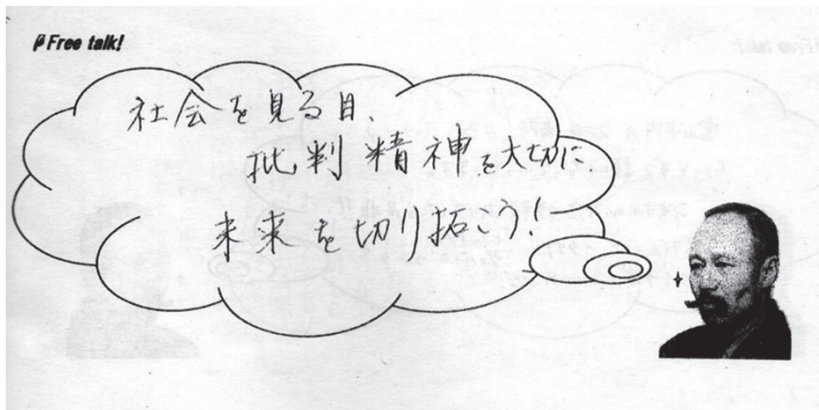 Free talk!
社会を見る目、
批判精神を大切に
未来を切り拓こう!